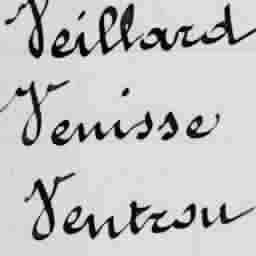 Veillard
Venisse
Ventrou